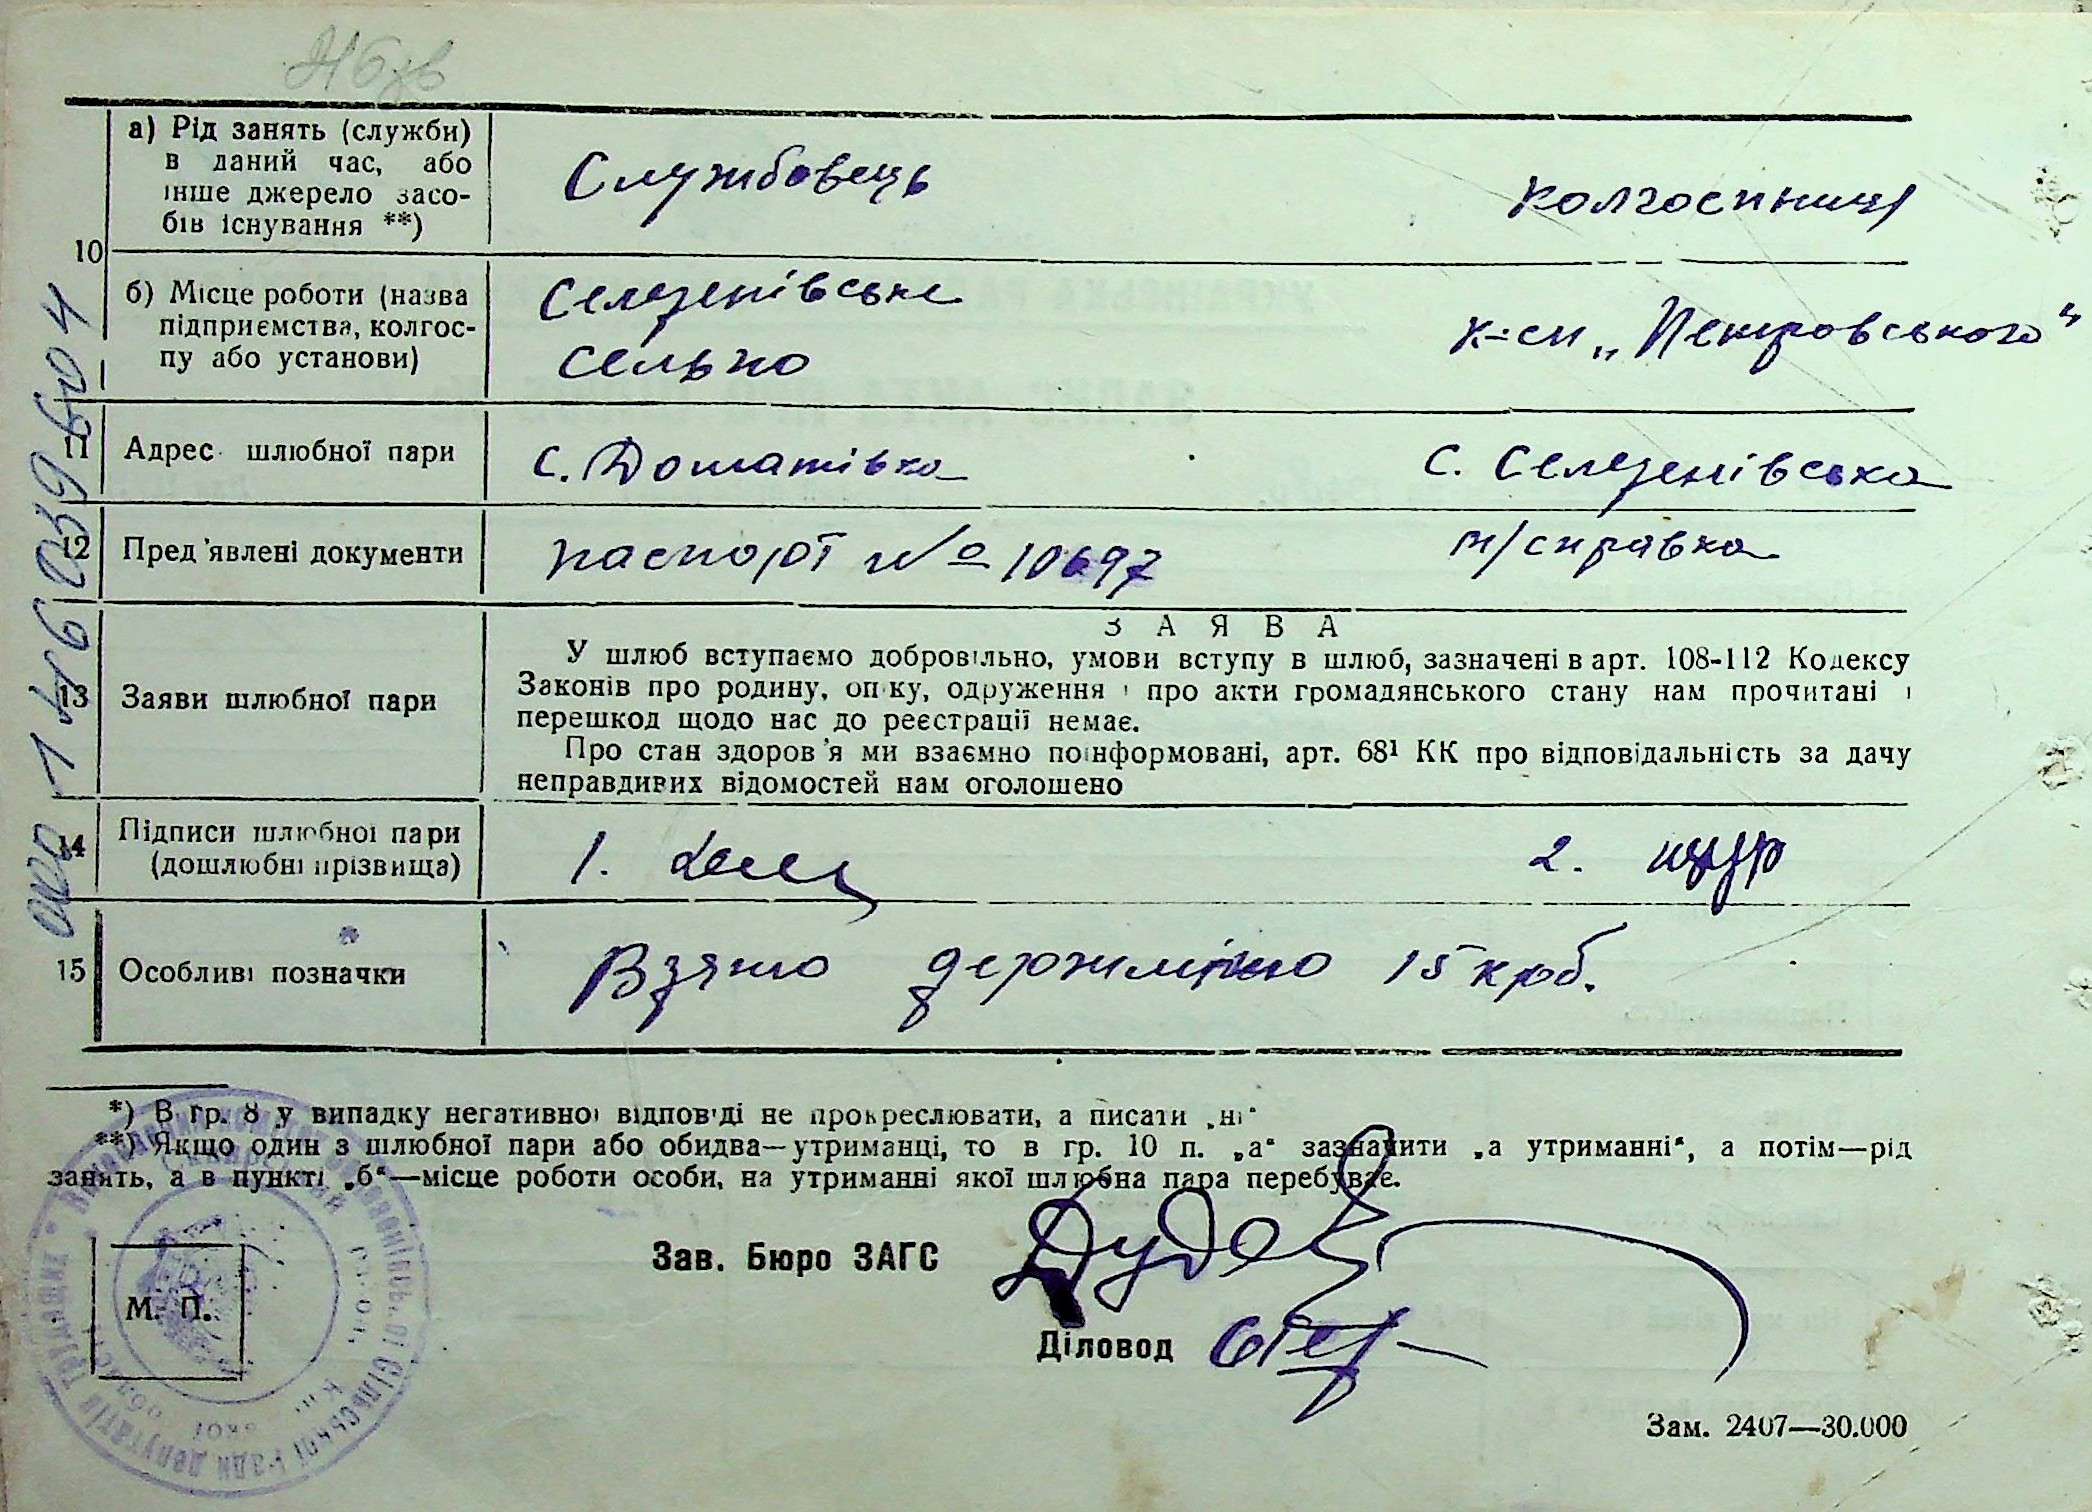 а) Рід занять (служби)
в даний час, або
інше джерело засо-
бів існування **)
Службовець
колгоспниця
10
б) Місце роботи (назва
підприємства, колгос-
пу або установи)
Селезенівське
сельпо
к-сп „Петровського"
11 Адрес шлюбної пари
с. Доматівка
с. Селезенівська
12 Пред'явлені документи
паспорт № 10697
т/справка
13 Заяви шлюбної пари
ЗАЯВА
У шлюб вступаємо добровільно, умови вступу в шлюб, зазначені в арт. 108-112 Кодексу
Законів про родину, опіку, одруження і про акти громадянського стану нам прочитані і
перешкод щодо нас до реєстрації немає.
Про стан здоров'я ми взаємно поінформовані, арт. 68¹ КК про відповідальність за дачу
неправдивих відомостей нам оголошено
14 Підписи шлюбної пари
(дошлюбні прізвища)
1.
2. щур
15 Особливі позначки
Взято держмито 15 крб.
*) В гр. 8 у випадку негативної відповіді не прокреслювати, а писати „ні"
**) Якщо один з шлюбної пари або обидва—утриманці, то в гр. 10 п. „а" зазначити „а утриманні", а потім—рід
занять, а в пункті „б"—місце роботи особи, на утриманні якої шлюбна пара перебуває.
Зав. Бюро ЗАГС
М. П.
Діловод
Зам. 2407—30.000